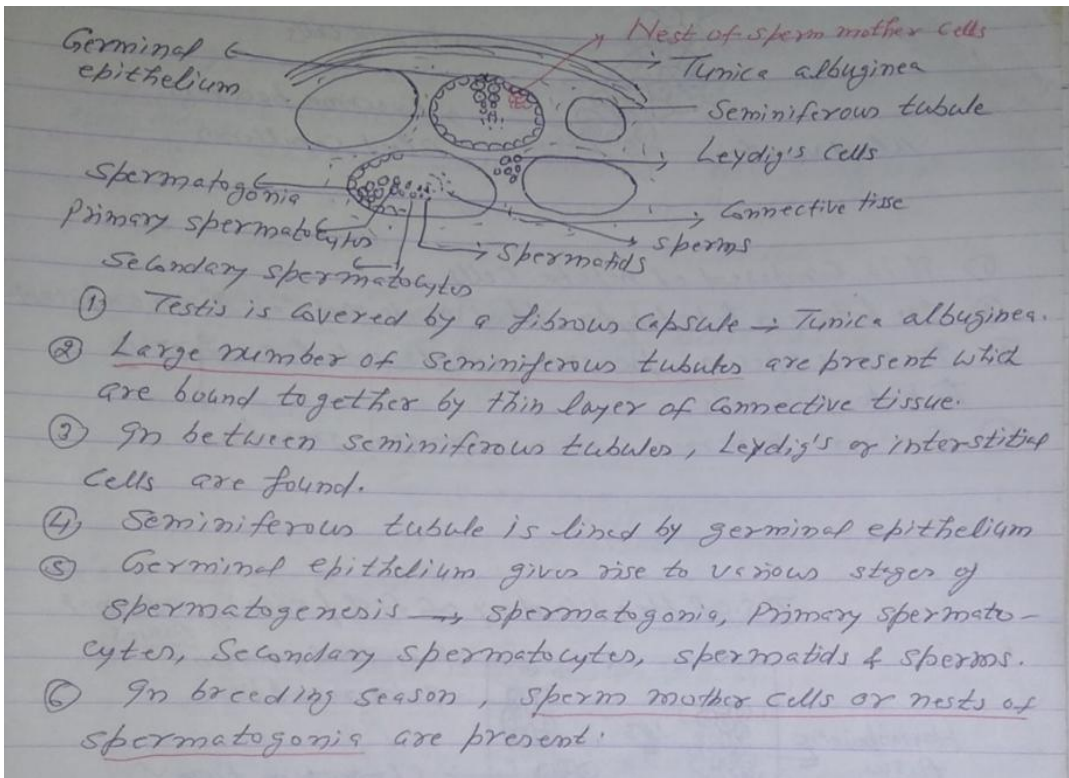 Germinal
epithelium
Nest of sperm mother cells
Tunica albuginea
Seminiferous tubule
Leydig's Cells
Spermatogonia
Primary spermatocytes
Secondary spermatocytes
Connective tisse
sperms
Spermatids
① Testis is covered by a fibrous capsule → Tunica albuginea.
② Large number of seminiferous tubules are present which
are bound together by thin layer of connective tissue.
③ In between seminiferous tubules, Leydig's or interstitial
cells are found.
④ Seminiferous tubule is lined by germinal epithelium
⑤ Germinal epithelium gives rise to various stages of
spermatogenesis → spermatogonia, Primary spermato-
cytes, Secondary spermatocytes, spermatids & sperms.
⑥ In breeding season, sperm mother cells or nests of
spermatogonia are present.